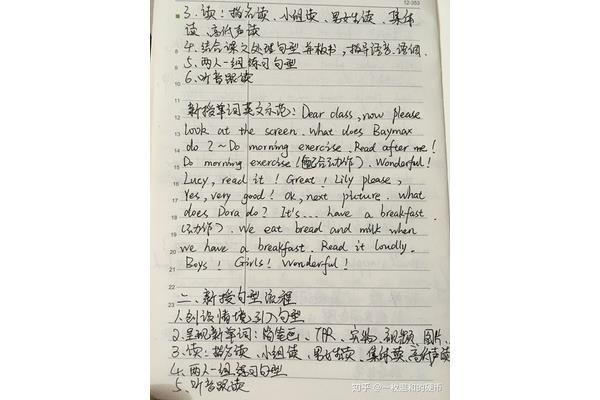 12-353
3. 读：指名读、小组读、男女生读、集体
读、高低声读
4. 结合课文处理句型并板书，指导语音、语调.
5. 两人一组练习句型
6. 听音跟读
新授单词英文示范：Dear class, now please
look at the screen. what does Baymax
do ? ~ Do morning exercise. Read after me !
Do morning exercise (配合动作). Wonderful !
Lucy, read it ! Great ! Lily please,
Yes, very good ! Ok, next picture. what
does Dora do ? It's... have a breakfast.
(动作). we eat bread and milk when
we have a breakfast. Read it loudly.
Boys ! Girls ! Wonderful !
二、新授句型流程
1. 创设情境引入句型
2. 呈现新单词：简笔画、TPR、实物、视频、图片.
3. 读：指名读、小组读、男女生读、集体读、高低声读
4. 两人一组练习句型
5. 听音跟读
知乎 @一枚温和的硬币